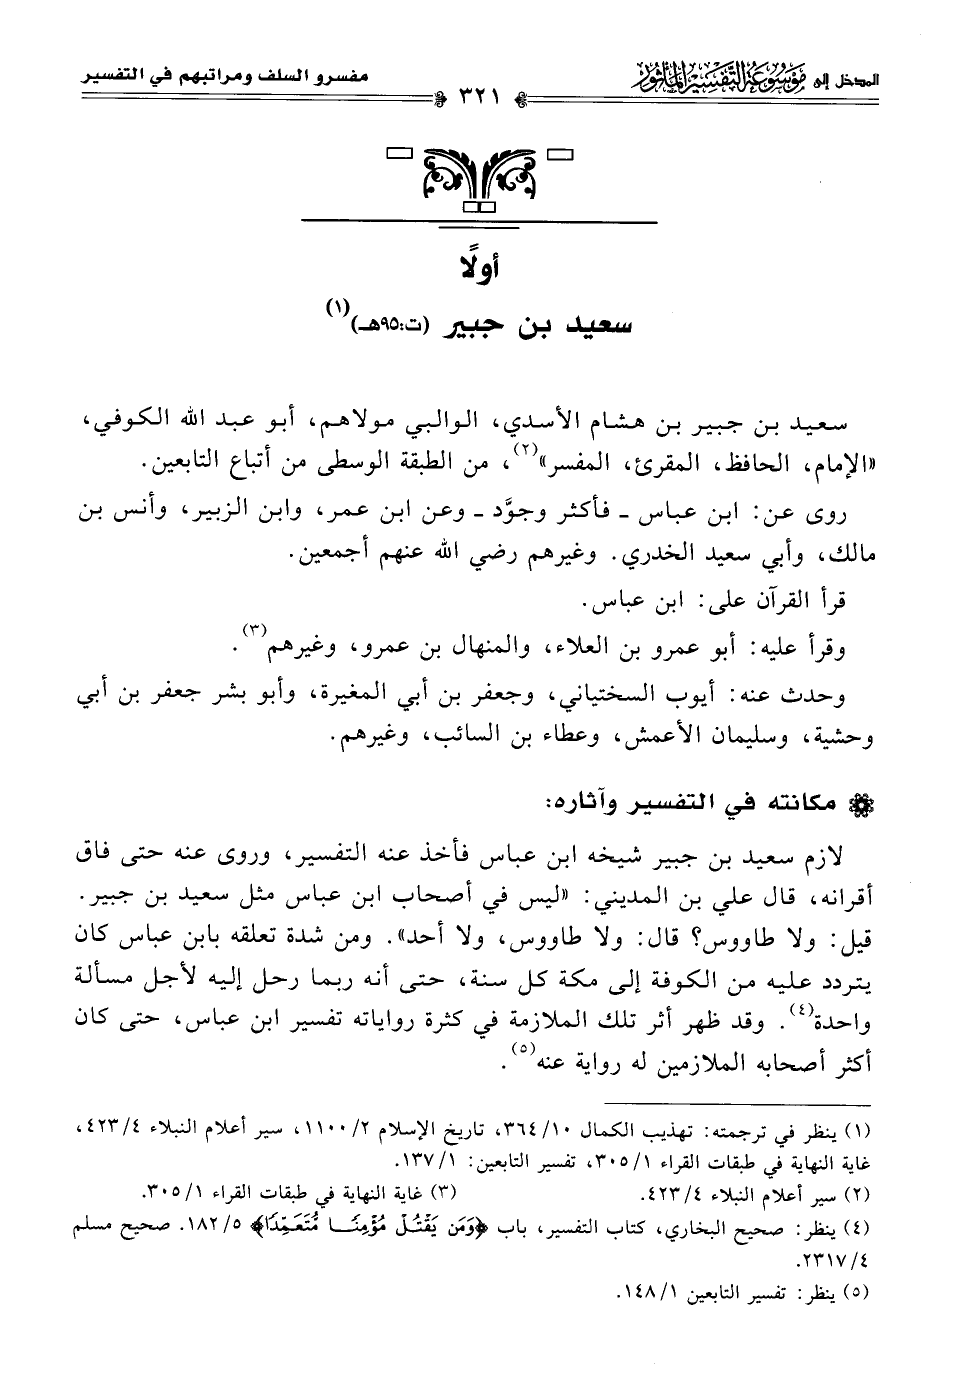 المدخل إلى موسوعة التفسير المأثور
مفسرو السلف ومراتبهم في التفسير
٣٢١
أولًا
سعيد بن جبير (ت:٩٥هـ)(١)
سعيد بن جبير بن هشام الأسدي، الوالبي مولاهم، أبو عبد الله الكوفي،
«الإمام، الحافظ، المقرئ، المفسر»(٢)، من الطبقة الوسطى من أتباع التابعين.
روى عن: ابن عباس ـ فأكثر وجوَّد ـ وعن ابن عمر، وابن الزبير، وأنس بن
مالك، وأبي سعيد الخدري. وغيرهم رضي الله عنهم أجمعين.
قرأ القرآن على: ابن عباس.
وقرأ عليه: أبو عمرو بن العلاء، والمنهال بن عمرو، وغيرهم(٣).
وحدث عنه: أيوب السختياني، وجعفر بن أبي المغيرة، وأبو بشر جعفر بن أبي
وحشية، وسليمان الأعمش، وعطاء بن السائب، وغيرهم.
مكانته في التفسير وآثاره:
لازم سعيد بن جبير شيخه ابن عباس فأخذ عنه التفسير، وروى عنه حتى فاق
أقرانه، قال علي بن المديني: «ليس في أصحاب ابن عباس مثل سعيد بن جبير.
قيل: ولا طاووس؟ قال: ولا طاووس، ولا أحد». ومن شدة تعلقه بابن عباس كان
يتردد عليه من الكوفة إلى مكة كل سنة، حتى أنه ربما رحل إليه لأجل مسألة
واحدة(٤). وقد ظهر أثر تلك الملازمة في كثرة رواياته تفسير ابن عباس، حتى كان
أكثر أصحابه الملازمين له رواية عنه(٥).
(١) ينظر في ترجمته: تهذيب الكمال ٣٦٤/١٠، تاريخ الإسلام ١١٠٠/٢، سير أعلام النبلاء ٤٢٣/٤،
غاية النهاية في طبقات القراء ٣٠٥/١، تفسير التابعين: ١٣٧/١.
(٢) سير أعلام النبلاء ٤٢٣/٤. (٣) غاية النهاية في طبقات القراء ٣٠٥/١.
(٤) ينظر: صحيح البخاري، كتاب التفسير، باب ﴿وَمَن يَقْتُلْ مُؤْمِنًا مُّتَعَمِّدًا﴾ ١٨٢/٥. صحيح مسلم
٢٣١٧/٤.
(٥) ينظر: تفسير التابعين ١٤٨/١.